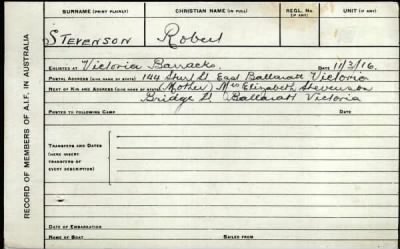 SURNAME (PRINT PLAINLY) CHRISTIAN NAME (IN FULL) REGL. No. (IF ANY) UNIT (IF ANY)
STEVENSON Robert
ENLISTED AT Victoria Barracks. DATE 11/3/16.
POSTAL ADDRESS (GIVE NAME OF STATE) 144 Sturt St East Ballarat Victoria
NEXT OF KIN AND ADDRESS (GIVE NAME OF STATE) (Mother) Mrs Elizabeth Stevenson
Bridge St Ballarat Victoria
POSTED TO FOLLOWING CAMP
TRANSFERS AND DATES
(HERE INSERT
TRANSFERS OF
EVERY DESCRIPTION)
DATE OF EMBARKATION
NAME OF BOAT SAILED FROM
RECORD OF MEMBERS OF A.I.F. IN AUSTRALIA